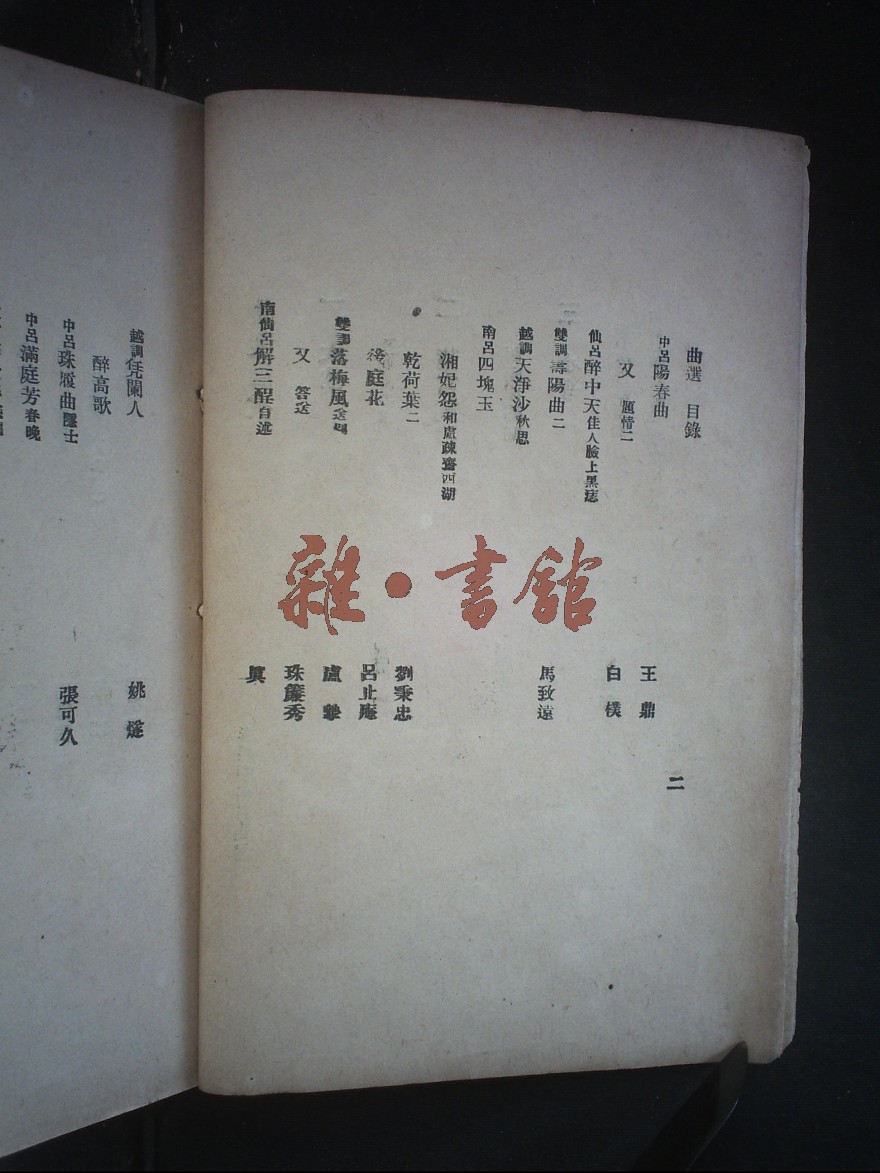 曲選 目錄
二
中呂陽春曲 王鼎
又 題情二 白樸
仙呂醉中天佳人臉上黑痣
雙調壽陽曲二 馬致遠
越調天淨沙秋思
南呂四塊玉
湘妃怨和盧疎齋西湖
乾荷葉二 劉秉忠
後庭花 呂止庵
雙調落梅風送別 盧摯
又 答盧 珠簾秀
南仙呂解三酲自述 眞
越調凭闌人 姚燧
醉高歌
中呂珠履曲隱士 張可久
中呂滿庭芳春晚
雜·書館